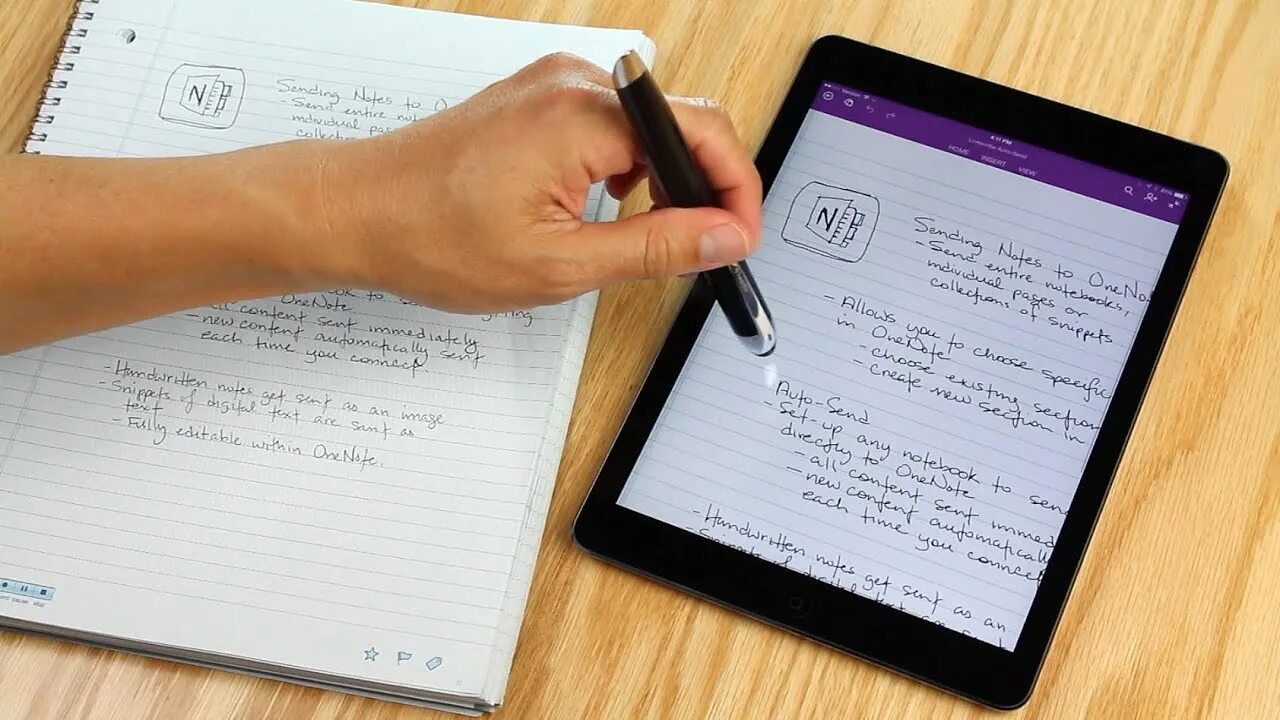 N
Sending Notes to O
- Send entire
individual pag
collection
OneNote
- all content sent immediately
- new content automatically sent
each time you connect
- Handwritten notes get sent as an image
- Snippets of digital text are sent as
text
- Fully editable within OneNote.
pause stop
Verizon
4:11 PM
Livescribe Auto-Send
HOME INSERT VIEW
N
Sending Notes to OneNo
- Send entire notebooks,
individual pages or
collections of snippets
- Allows you to choose specific
in OneNote
- choose existing section
- create new section in
Auto-Send
- Set-up any notebook to send
directly to OneNote
- all content sent immed
- new content automatically
each time you connect
- Handwritten notes get sent as an
- Snippets of digital